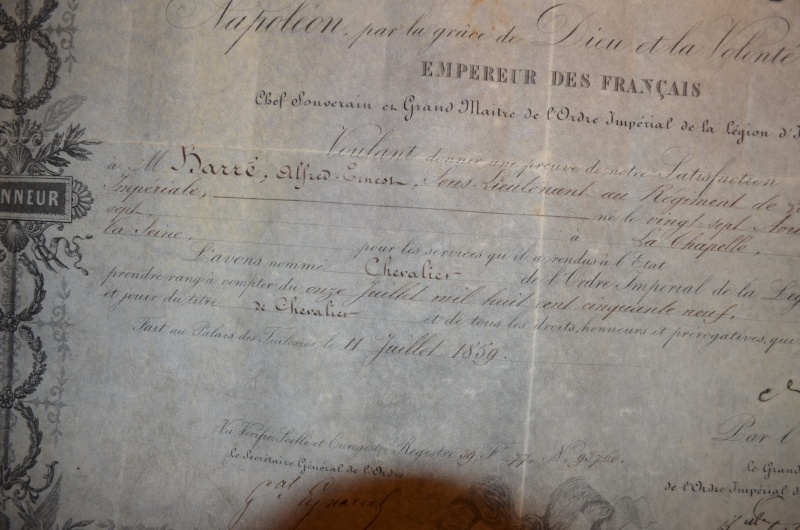 Napoléon, par la grâce de Dieu et la Volonté
EMPEREUR DES FRANÇAIS
Chef Souverain et Grand Maitre de l'Ordre Impérial de la Légion d'H
Voulant donner une preuve de notre Satisfaction
à M. Barré, Alfred-Ernest, Sous-Lieutenant au Régiment de
NNEUR
Impériale, né le vingt sept
sept, à La Chapelle,
la Seine, pour les services qu'il a rendus à l'Etat
L'avons nommé Chevalier de l'Ordre Impérial de la Lég
prendre rang à compter du onze Juillet mil huit cent cinquante neuf,
et jouir du titre de Chevalier et de tous les droits, honneurs et prérogatives, qui
Fait au Palais des Tuileries, le 11 Juillet 1859.
Par l'
Vu Vérifié Scellé et Enregistré Registre 39, F° 77. N°
Le Secrétaire Général de l'Ordre
Le Grand
de l'Ordre Impérial d